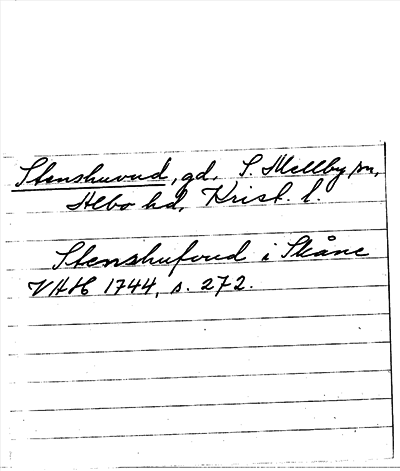 Stenshuvud, gd, S. Mellby sn,
Albo hd, Krist. l.
Stenshufvud i Skåne
VAH 1744, s. 272.